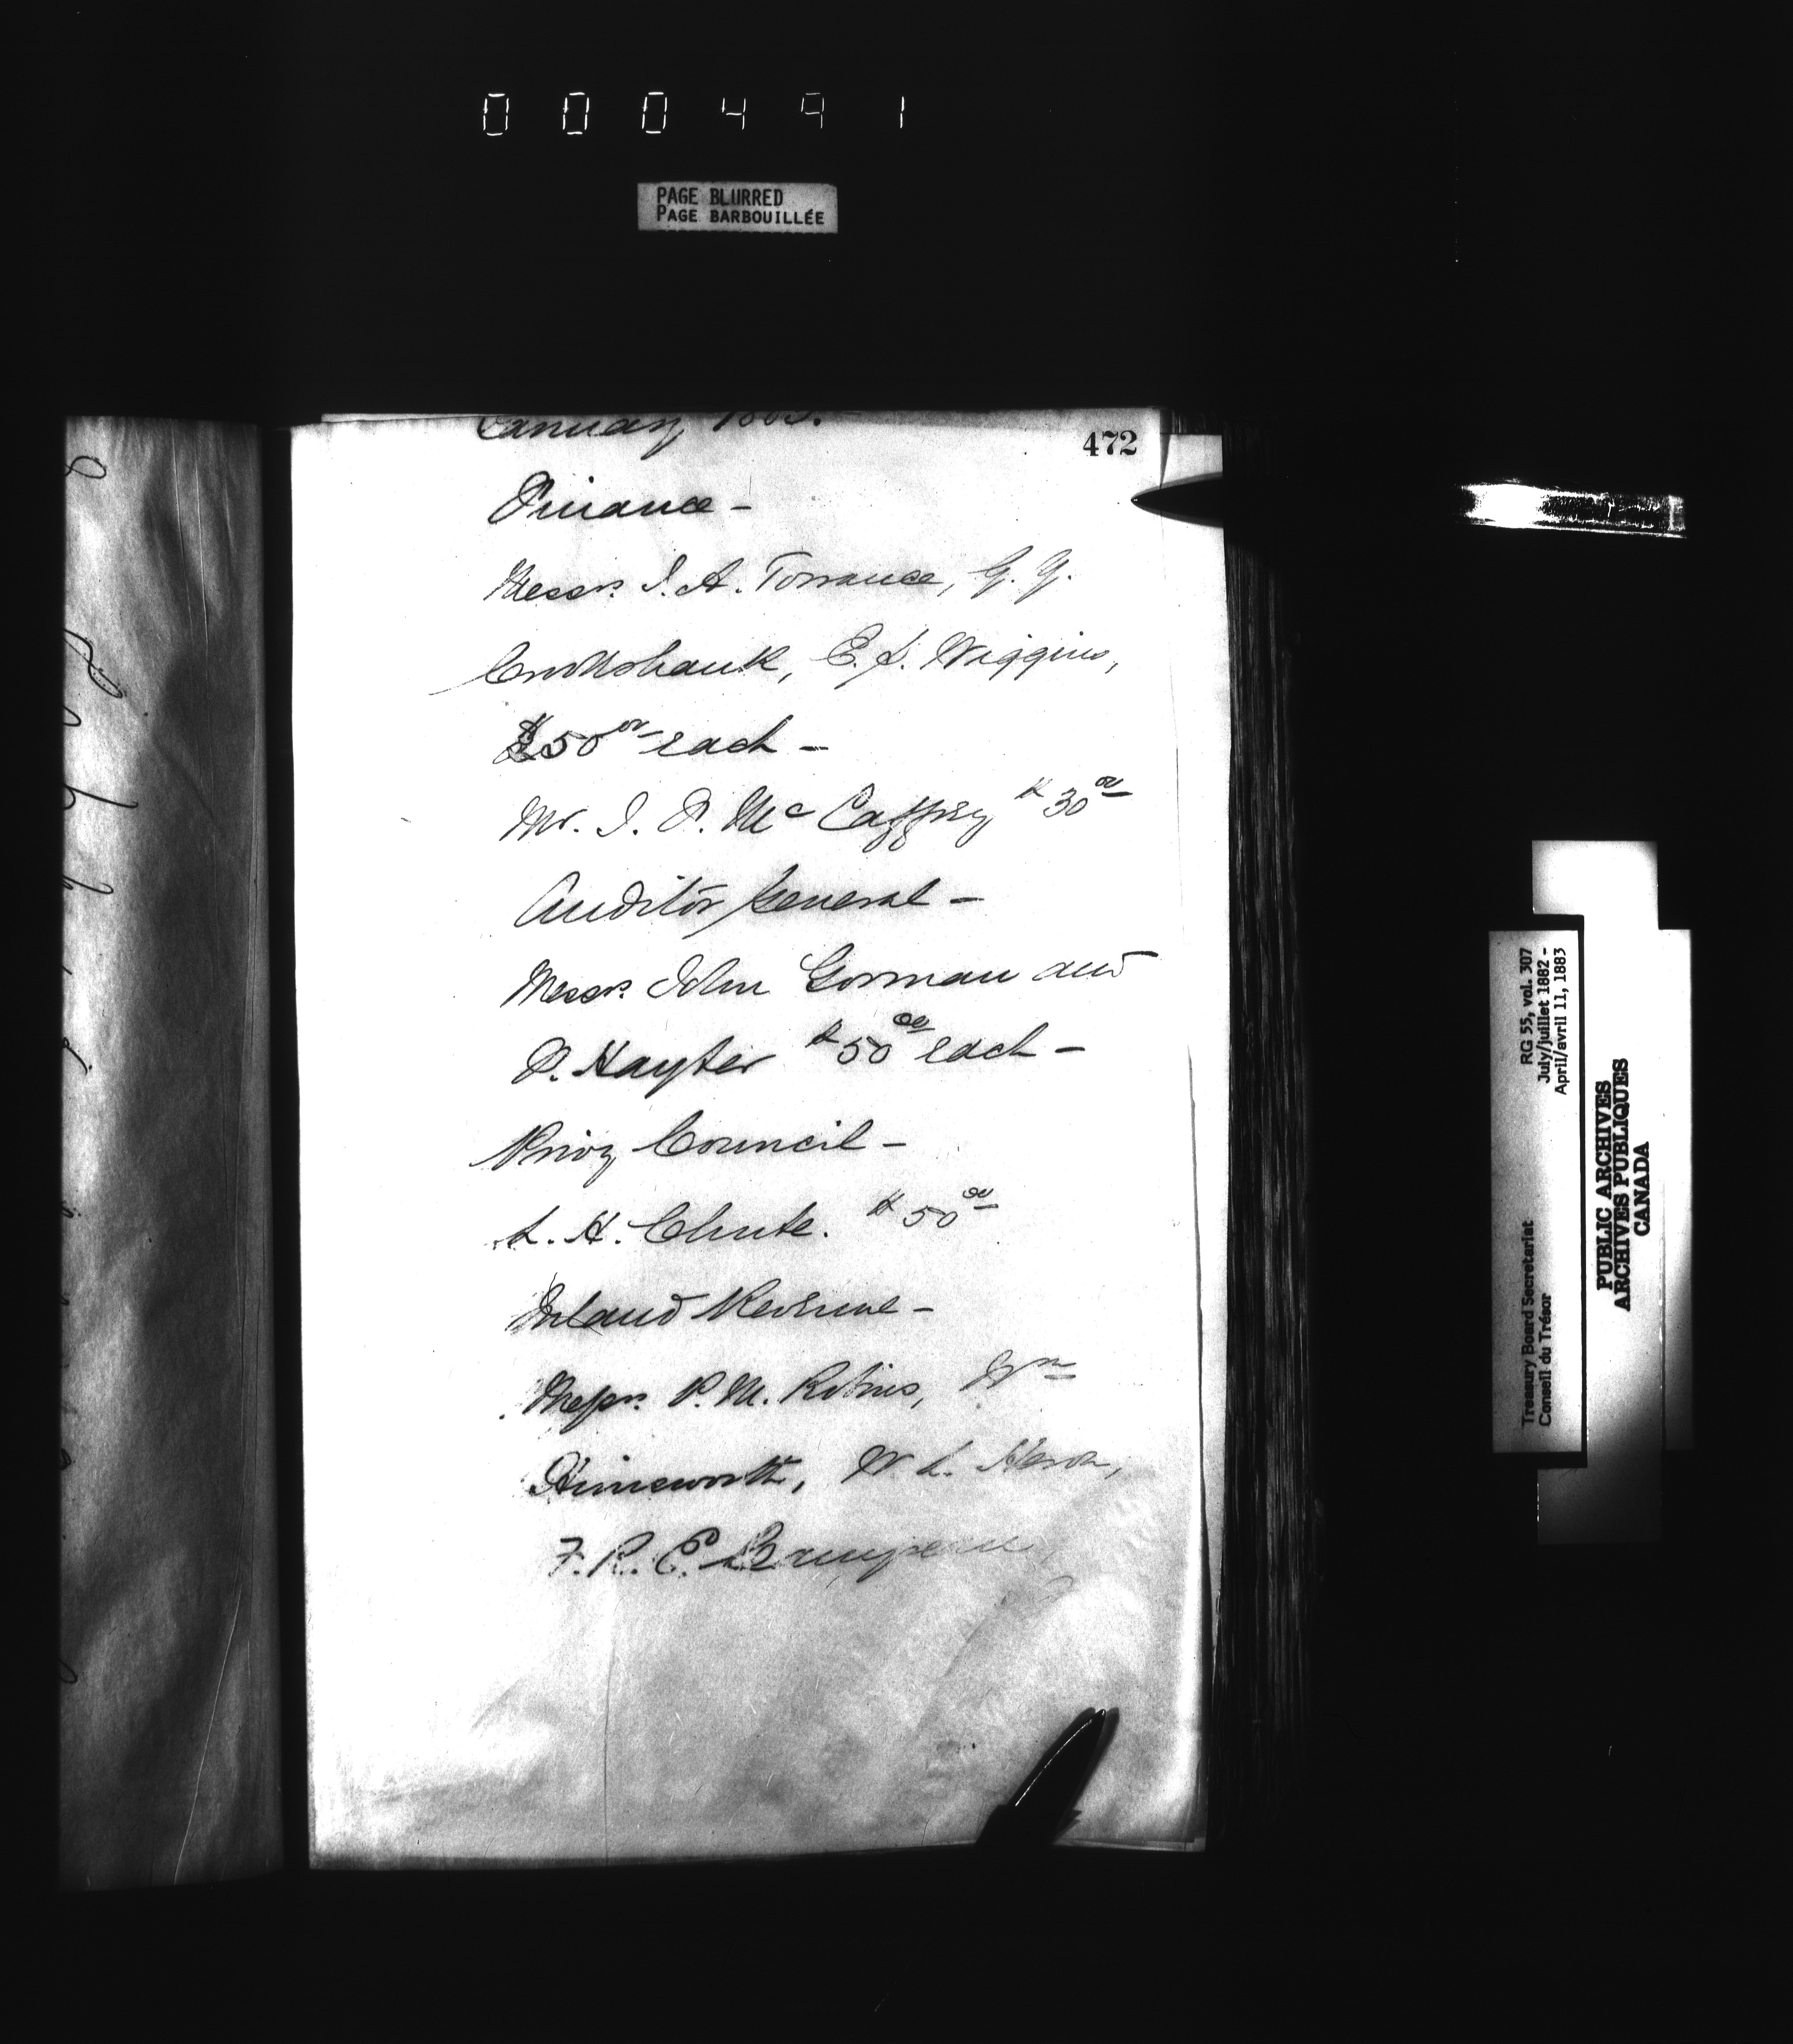 000491
PAGE BLURRED
PAGE BARBOUILLÉE
January 1883.
472
Finance -
Messrs. J. A. Torrance, G. G.
Crookshank, E. S. Wiggins,
$50 00 each -
Mr. J. P. Mc Caffrey $30 00
Auditor General -
Messrs. John Gorman and
P. Hayter $50 00 each -
Privy Council -
L. H. Chute. $50 00
Inland Revenue -
Messrs. P. M. Robins, Wm
Himsworth, W. L. Heron,
F. R. E. Campeau
RG 55, vol. 307
July/juillet 1882 -
April/avril 11, 1883
Treasury Board Secretariat
Conseil du Trésor
PUBLIC ARCHIVES
ARCHIVES PUBLIQUES
CANADA